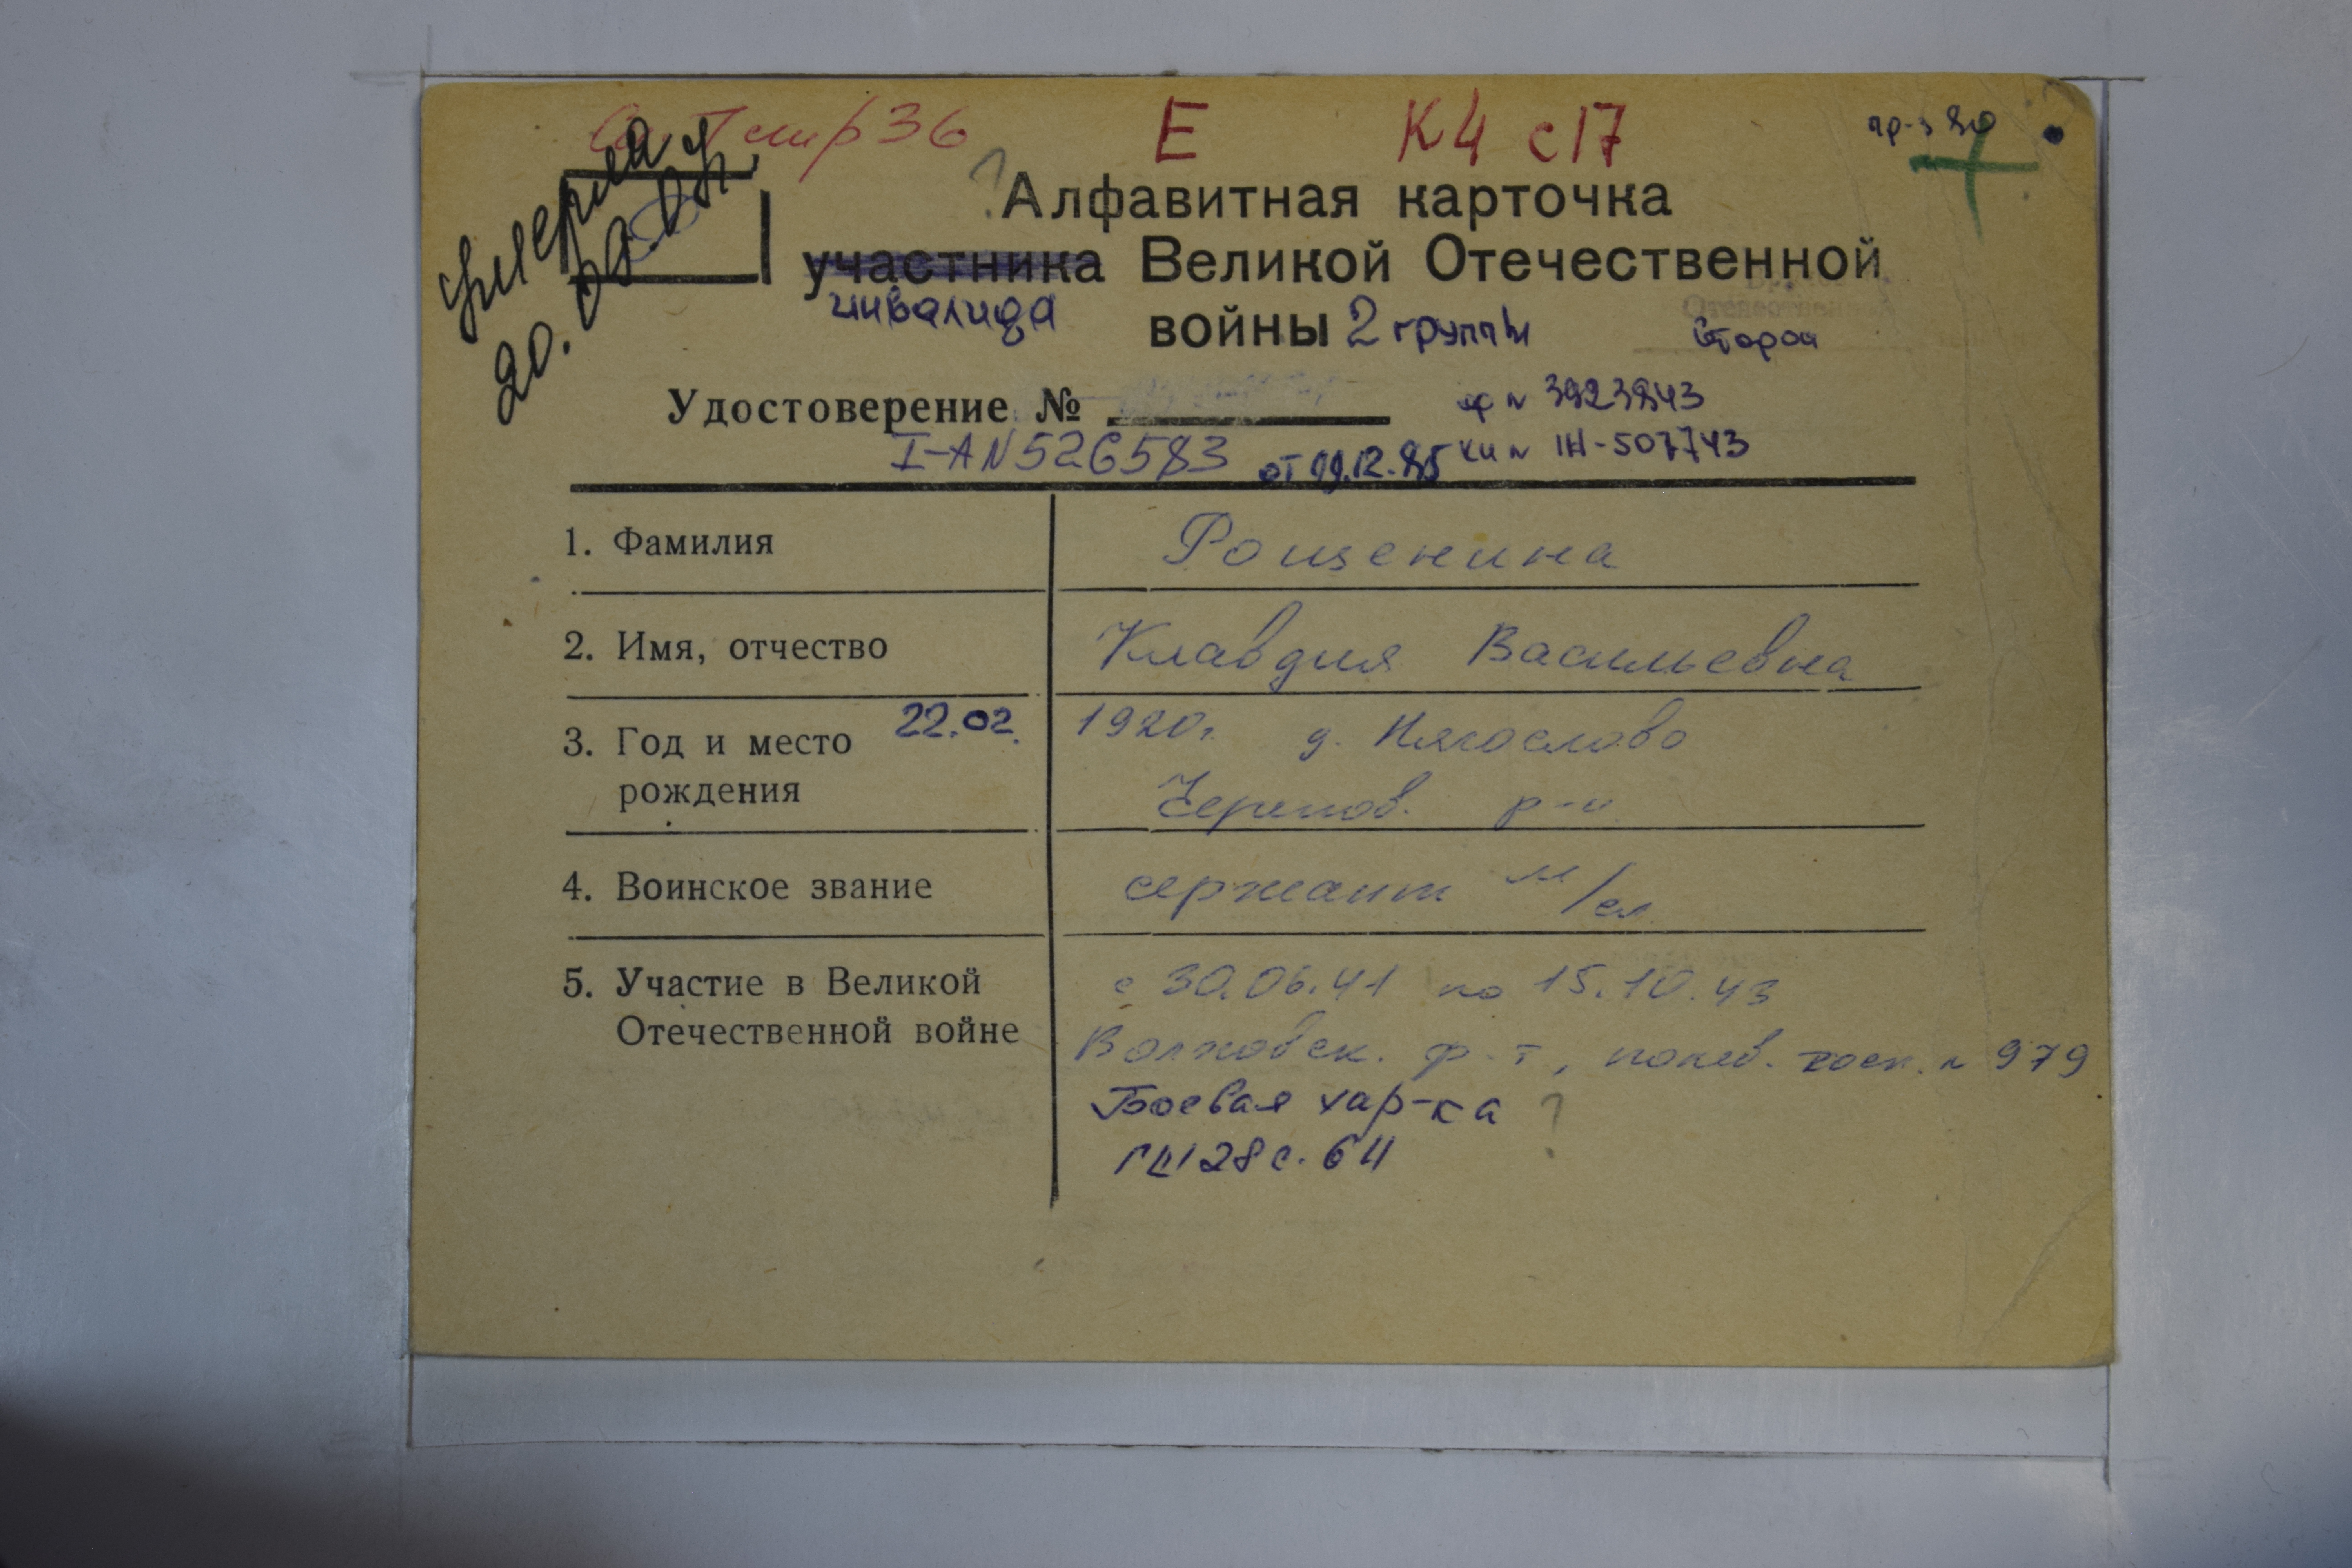 36 Е К4 с17 пр-з 80
умерла
20.09.09г.
Алфавитная карточка
участника Великой Отечественной
инвалида войны 2 группы Второй
Удостоверение № ор № 3923843
I-А N 526583 от 09.12.85 КИ № 1Н-507743
1. Фамилия Рощенина
2. Имя, отчество Клавдия Васильевна
3. Год и место 22.02. 1920г. д. Нягослово
рождения Черепов. р-н
4. Воинское звание сержант м/сл
5. Участие в Великой с 30.06.41 по 15.10.43
Отечественной войне Волховск. ф-т, полев. госп. № 979
Боевая хар-ка ?
128 с. 64